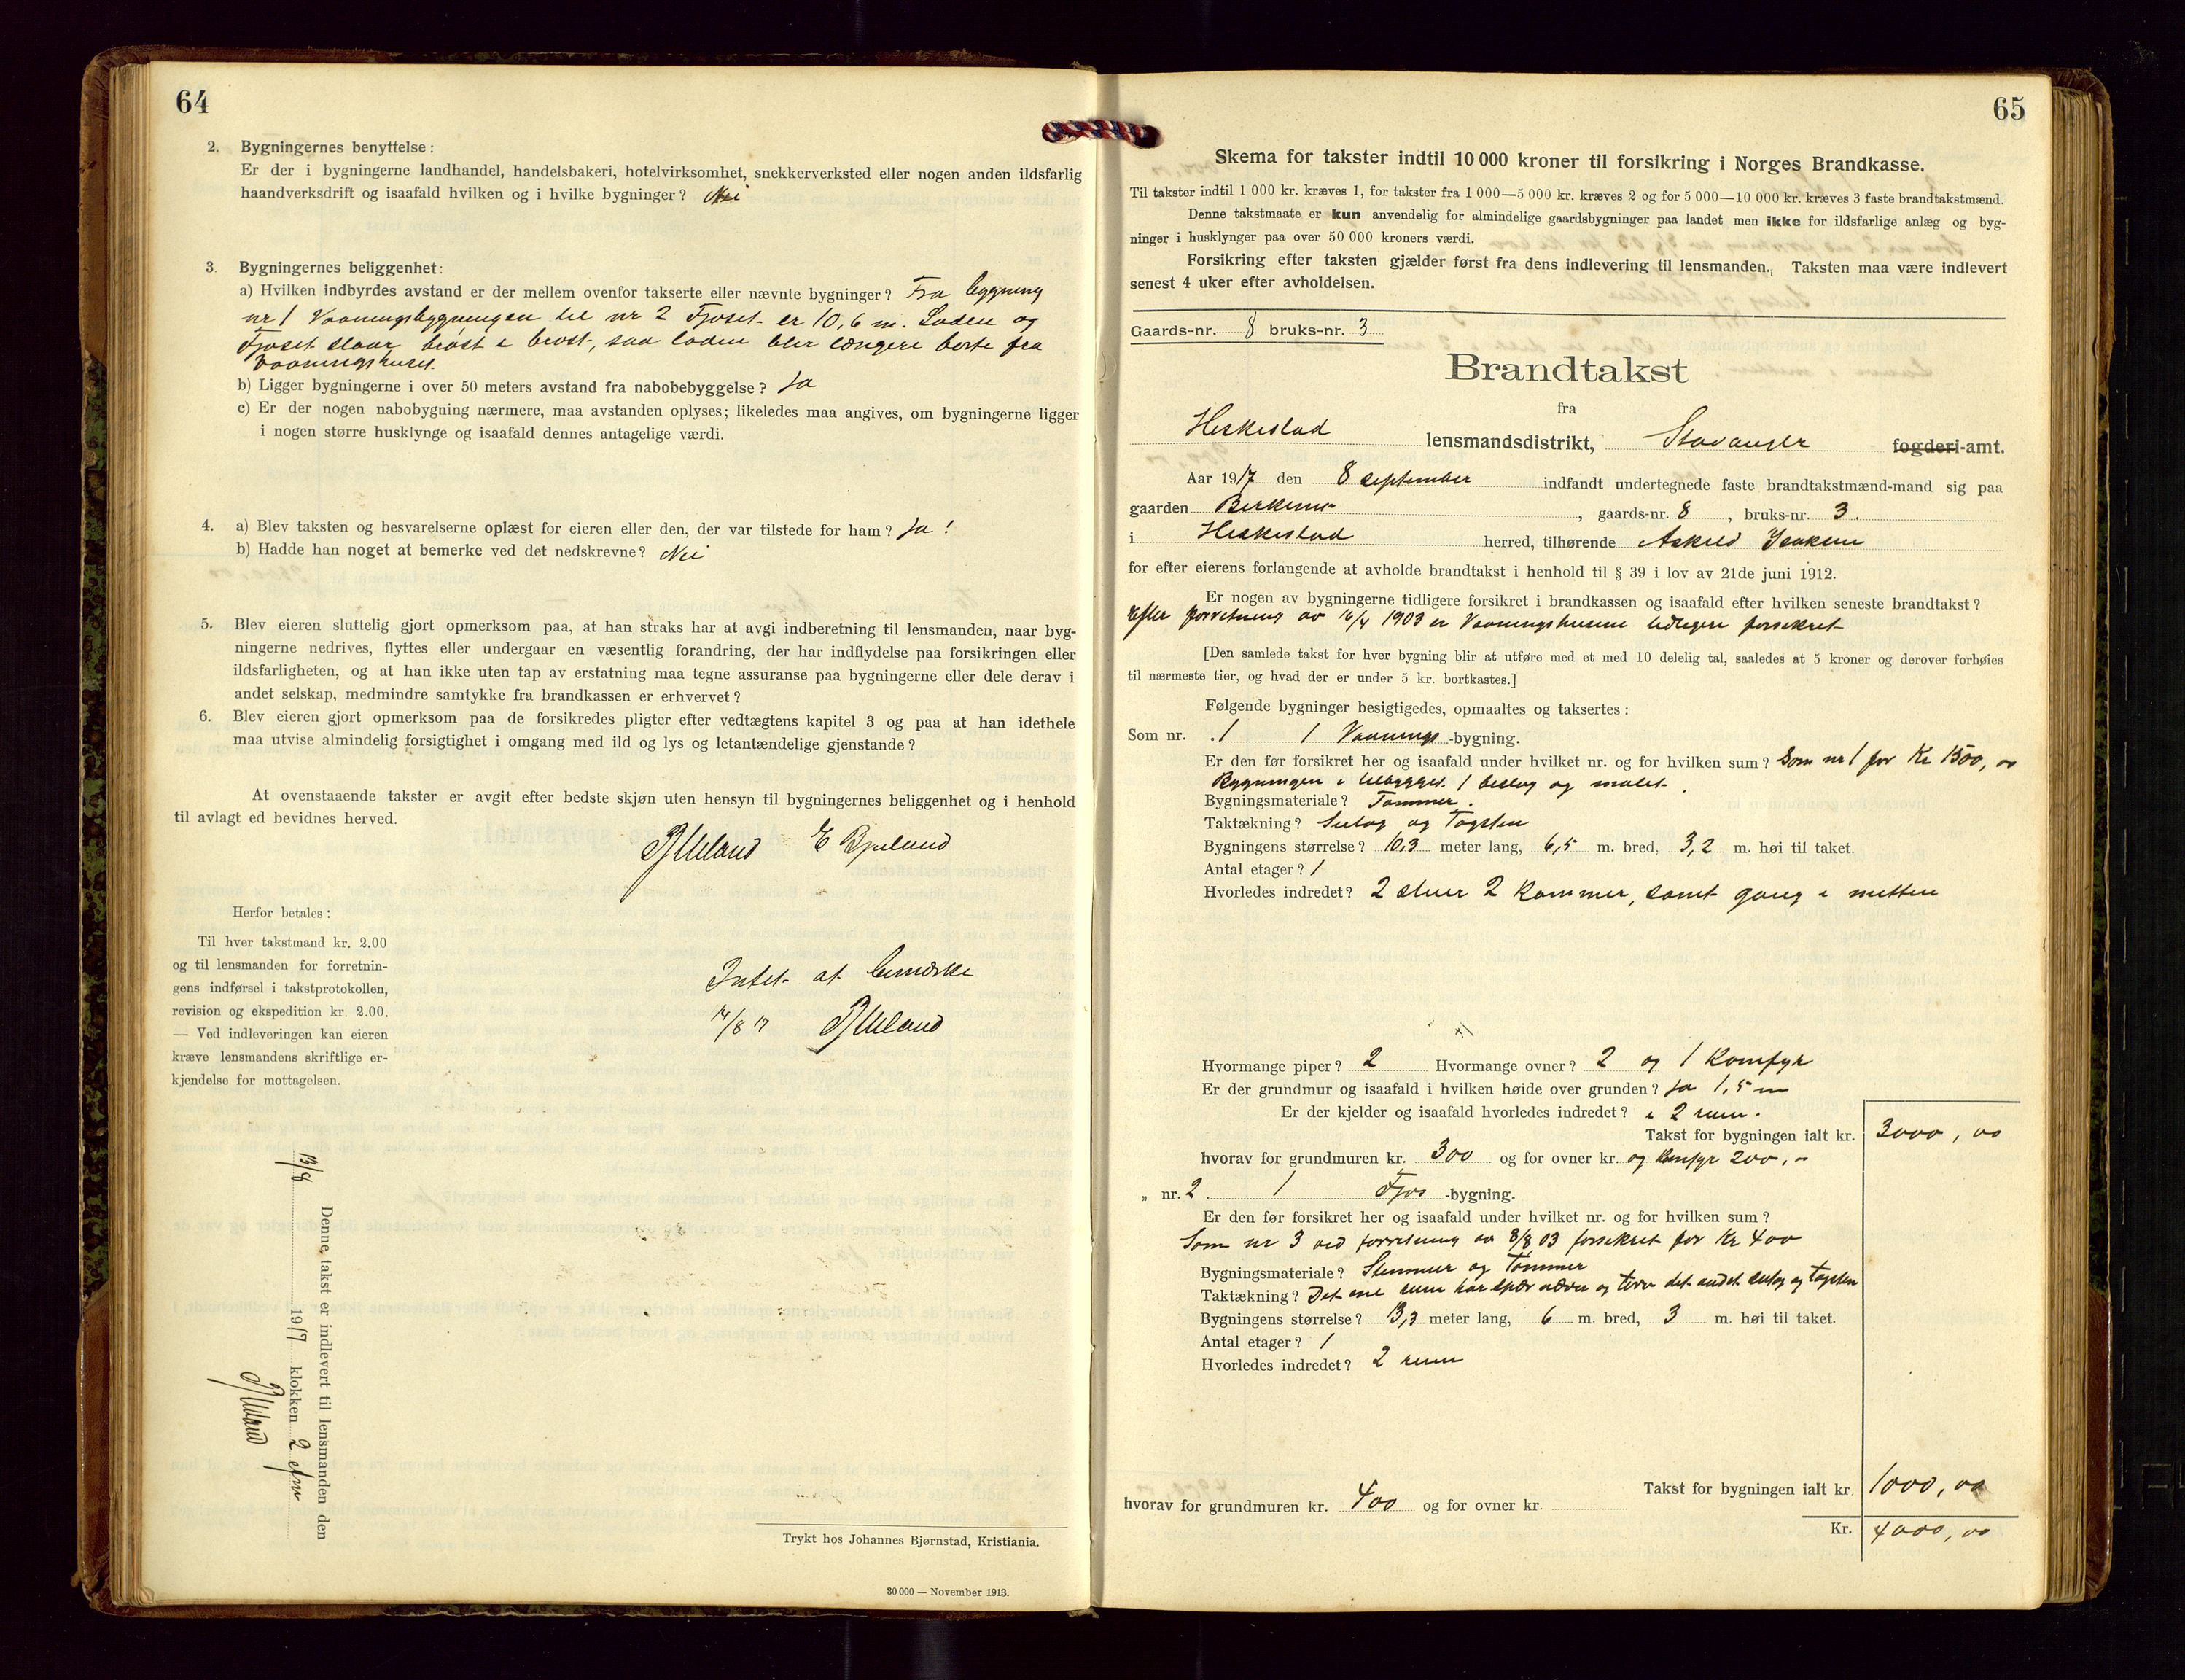 64
2. Bygningernes benyttelse:
Er der i bygningerne landhandel, handelsbakeri, hotelvirksomhet, snekkerverksted eller nogen anden ildsfarlig
haandverksdrift og isaafald hvilken og i hvilke bygninger? Nei
3. Bygningernes beliggenhet:
a) Hvilken indbyrdes avstand er der mellem ovenfor takserte eller nævnte bygninger? Fra bygning
nr 1 Vaaningsbygningen til nr 2 Fjoset er 10,6 m. Laden og
Fjoset staar brøst i brøst, saa laden blir længere borte fra
Vaaningshuset.
b) Ligger bygningerne i over 50 meters avstand fra nabobebyggelse? Ja
c) Er der nogen nabobygning nærmere, maa avstanden oplyses; likeledes maa angives, om bygningerne ligger
i nogen større husklynge og isaafald dennes antagelige værdi.
4. a) Blev taksten og besvarelserne oplæst for eieren eller den, der var tilstede for ham? Ja!
b) Hadde han noget at bemerke ved det nedskrevne? Nei
5. Blev eieren sluttelig gjort opmerksom paa, at han straks har at avgi indberetning til lensmanden, naar byg-
ningerne nedrives, flyttes eller undergaar en væsentlig forandring, der har indflydelse paa forsikringen eller
ildsfarligheten, og at han ikke uten tap av erstatning maa tegne assuranse paa bygningerne eller dele derav i
andet selskap, medmindre samtykke fra brandkassen er erhvervet?
6. Blev eieren gjort opmerksom paa de forsikredes pligter efter vedtægtens kapitel 3 og paa at han idethele
maa utvise almindelig forsigtighet i omgang med ild og lys og letantændelige gjenstande?
At ovenstaaende takster er avgit efter bedste skjøn uten hensyn til bygningernes beliggenhet og i henhold
til avlagt ed bevidnes herved.
E Bjelland
Herfor betales:
Til hver takstmand kr. 2.00
og til lensmanden for forretnin-
gens indførsel i takstprotokollen,
revision og ekspedition kr. 2.00.
— Ved indleveringen kan eieren
kræve lensmandens skriftlige er-
kjendelse for mottagelsen.
Intet at bemærke
Denne takst er indlevert til lensmanden den
13/8 1917 klokken 2 efm
Trykt hos Johannes Bjørnstad, Kristiania.
30 000 — November 1913.
65
Skema for takster indtil 10 000 kroner til forsikring i Norges Brandkasse.
Til takster indtil 1 000 kr. kræves 1, for takster fra 1 000—5 000 kr. kræves 2 og for 5 000—10 000 kr. kræves 3 faste brandtakstmænd.
Denne takstmaate er kun anvendelig for almindelige gaardsbygninger paa landet men ikke for ildsfarlige anlæg og byg-
ninger i husklynger paa over 50 000 kroners værdi.
Forsikring efter taksten gjælder først fra dens indlevering til lensmanden. Taksten maa være indlevert
senest 4 uker efter avholdelsen.
Gaards-nr. 8 bruks-nr. 3
Brandtakst
fra
Heskestad lensmandsdistrikt, Stavanger fogderi-amt.
Aar 1917 den 8 september indfandt undertegnede faste brandtakstmænd-mand sig paa
gaarden , gaards-nr. 8, bruks-nr. 3.
i Heskestad herred, tilhørende Isaksen
for efter eierens forlangende at avholde brandtakst i henhold til § 39 i lov av 21de juni 1912.
Er nogen av bygningerne tidligere forsikret i brandkassen og isaafald efter hvilken seneste brandtakst?
Efter forretning av 16/4 1903 er Vaaningshusene tidligere forsikret
[Den samlede takst for hver bygning blir at utføre med et med 10 delelig tal, saaledes at 5 kroner og derover forhøies
til nærmeste tier, og hvad der er under 5 kr. bortkastes.]
Følgende bygninger besigtigedes, opmaaltes og taksertes:
Som nr. 1 1 Vaanings-bygning.
Er den før forsikret her og isaafald under hvilket nr. og for hvilken sum? Som nr 1 for Kr 1500,00
Bygningen er tilbygget. 1 beslag og malet.
Bygningsmateriale? Tømmer.
Taktækning? Sutag og Tagsten
Bygningens størrelse? 10,3 meter lang, 6,5 m. bred, 3,2 m. høi til taket.
Antal etager? 1
Hvorledes indredet? 2 stuer 2 Kammer, samt gang i mitten
Hvormange piper? 2 Hvormange ovner? 2 og 1 Komfyr
Er der grundmur og isaafald i hvilken høide over grunden? Ja 1,5 m
Er der kjelder og isaafald hvorledes indredet? i 2 rum.
Takst for bygningen ialt kr. 3000,00
hvorav for grundmuren kr. 300 og for ovner kr. og Komfyr 200.-
„ nr. 2 1 Fjøs-bygning.
Er den før forsikret her og isaafald under hvilket nr. og for hvilken sum?
Som nr 3 ved forretning av 8/8 03 forsikret for Kr 400
Bygningsmateriale? Stenmur og Tømmer
Taktækning? Det ene rum har spær næver og torv det andet sutag og tagsten
Bygningens størrelse? 13,3 meter lang, 6 m. bred, 3 m. høi til taket.
Antal etager? 1
Hvorledes indredet? 2 rum
Takst for bygningen ialt kr. 1000,00
hvorav for grundmuren kr. 400 og for ovner kr.
Kr. 4000,00